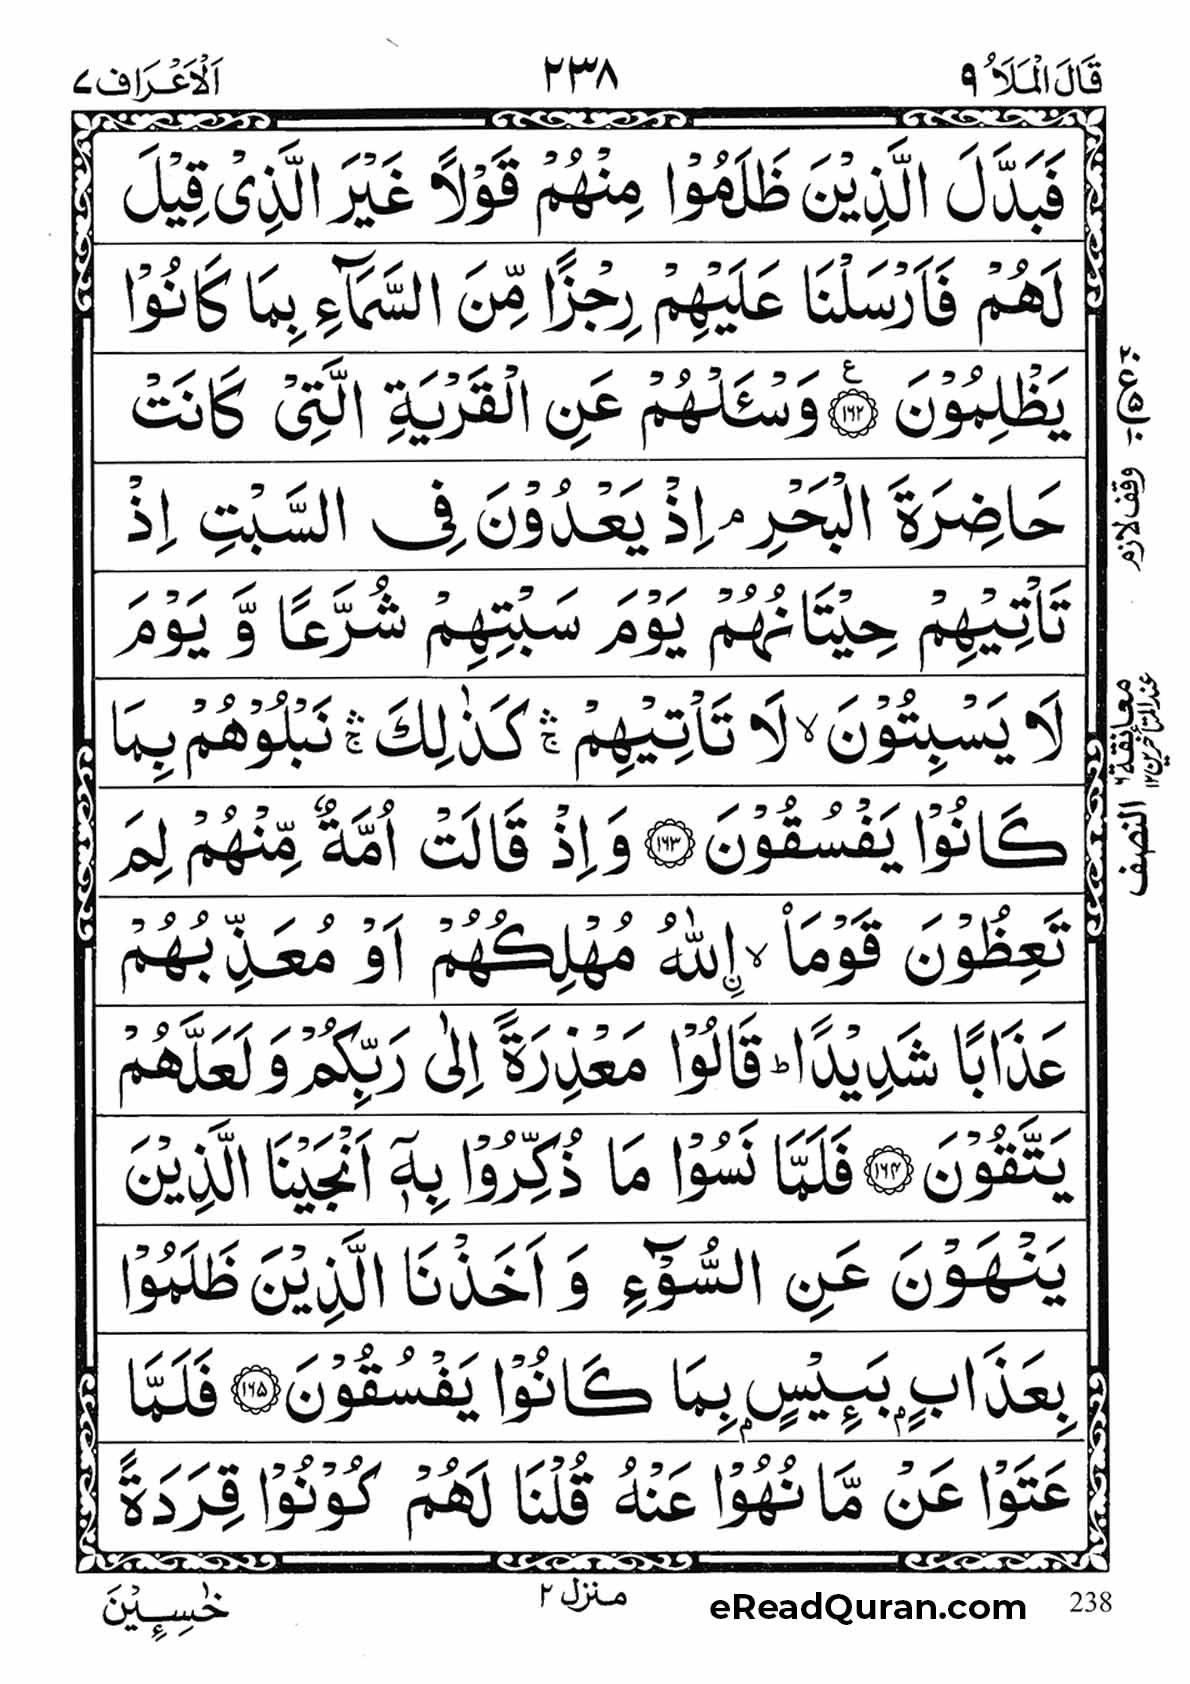 قَالَ الْمَلَاُ ۹ ۲۳۸ اَلْاَعْرَاف ۷
فَبَدَّلَ الَّذِيْنَ ظَلَمُوْا مِنْهُمْ قَوْلًا غَيْرَ الَّذِىْ قِيْلَ
لَهُمْ فَاَرْسَلْنَا عَلَيْهِمْ رِجْزًا مِّنَ السَّمَآءِ بِمَا كَانُوْا
يَظْلِمُوْنَ ۝۱۶۲ ع وَسْـَٔلْهُمْ عَنِ الْقَرْيَةِ الَّتِىْ كَانَتْ
حَاضِرَةَ الْبَحْرِ ۘ اِذْ يَعْدُوْنَ فِى السَّبْتِ اِذْ
تَاْتِيْهِمْ حِيْتَانُهُمْ يَوْمَ سَبْتِهِمْ شُرَّعًا وَّ يَوْمَ
لَا يَسْبِتُوْنَ ۙ لَا تَاْتِيْهِمْ ۛۚ كَذٰلِكَ ۛۚ نَبْلُوْهُمْ بِمَا
كَانُوْا يَفْسُقُوْنَ ۝۱۶۳ وَاِذْ قَالَتْ اُمَّةٌ مِّنْهُمْ لِمَ
تَعِظُوْنَ قَوْمَاۨ ۙ اللّٰهُ مُهْلِكُهُمْ اَوْ مُعَذِّبُهُمْ
عَذَابًا شَدِيْدًا ؕ قَالُوْا مَعْذِرَةً اِلٰى رَبِّكُمْ وَ لَعَلَّهُمْ
يَتَّقُوْنَ ۝۱۶۴ فَلَمَّا نَسُوْا مَا ذُكِّرُوْا بِهٖۤ اَنْجَيْنَا الَّذِيْنَ
يَنْهَوْنَ عَنِ السُّوْٓءِ وَ اَخَذْنَا الَّذِيْنَ ظَلَمُوْا
بِعَذَابٍۭ بَـِٕيْسٍۭ بِمَا كَانُوْا يَفْسُقُوْنَ ۝۱۶۵ فَلَمَّا
عَتَوْا عَنْ مَّا نُهُوْا عَنْهُ قُلْنَا لَهُمْ كُوْنُوْا قِرَدَةً
وقف لازم
معانقة ۶
عند المتاخرين ۱۲
النصف
خٰسِـِٕيْنَ
منزل ۲
eReadQuran.com
238